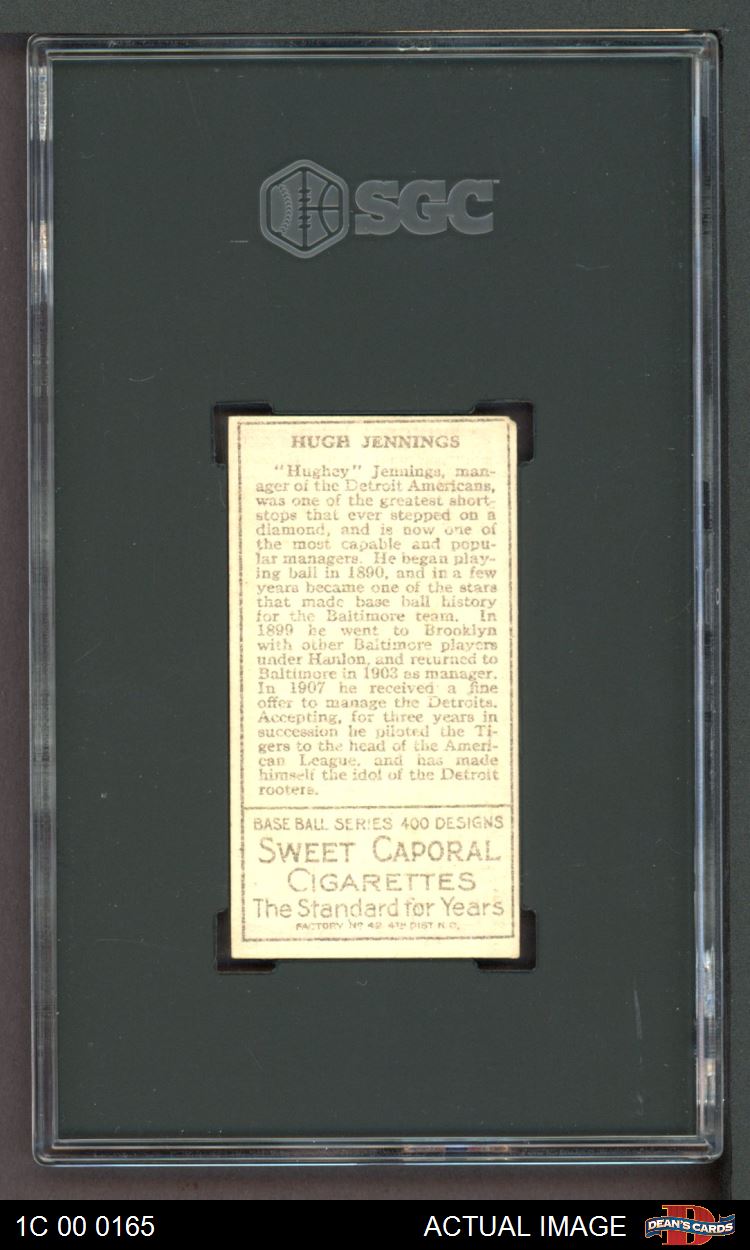 SGC
HUGH JENNINGS
"Hughey" Jennings, man-
ager of the Detroit Americans,
was one of the greatest short-
stops that ever stepped on a
diamond, and is now one of
the most capable and popu-
lar managers. He began play-
ing ball in 1890, and in a few
years became one of the stars
that made base ball history
for the Baltimore team. In
1899 he went to Brooklyn
with other Baltimore players
under Hanlon, and returned to
Baltimore in 1903 as manager.
In 1907 he received a fine
offer to manage the Detroits.
Accepting, for three years in
succession he piloted the Ti-
gers to the head of the Ameri-
can League, and has made
himself the idol of the Detroit
rooters.
BASE BALL SERIES 400 DESIGNS
SWEET CAPORAL
CIGARETTES
The Standard for Years
FACTORY Nº 42 4TH DIST N.C.
1C 00 0165
ACTUAL IMAGE
D
DEAN'S CARDS